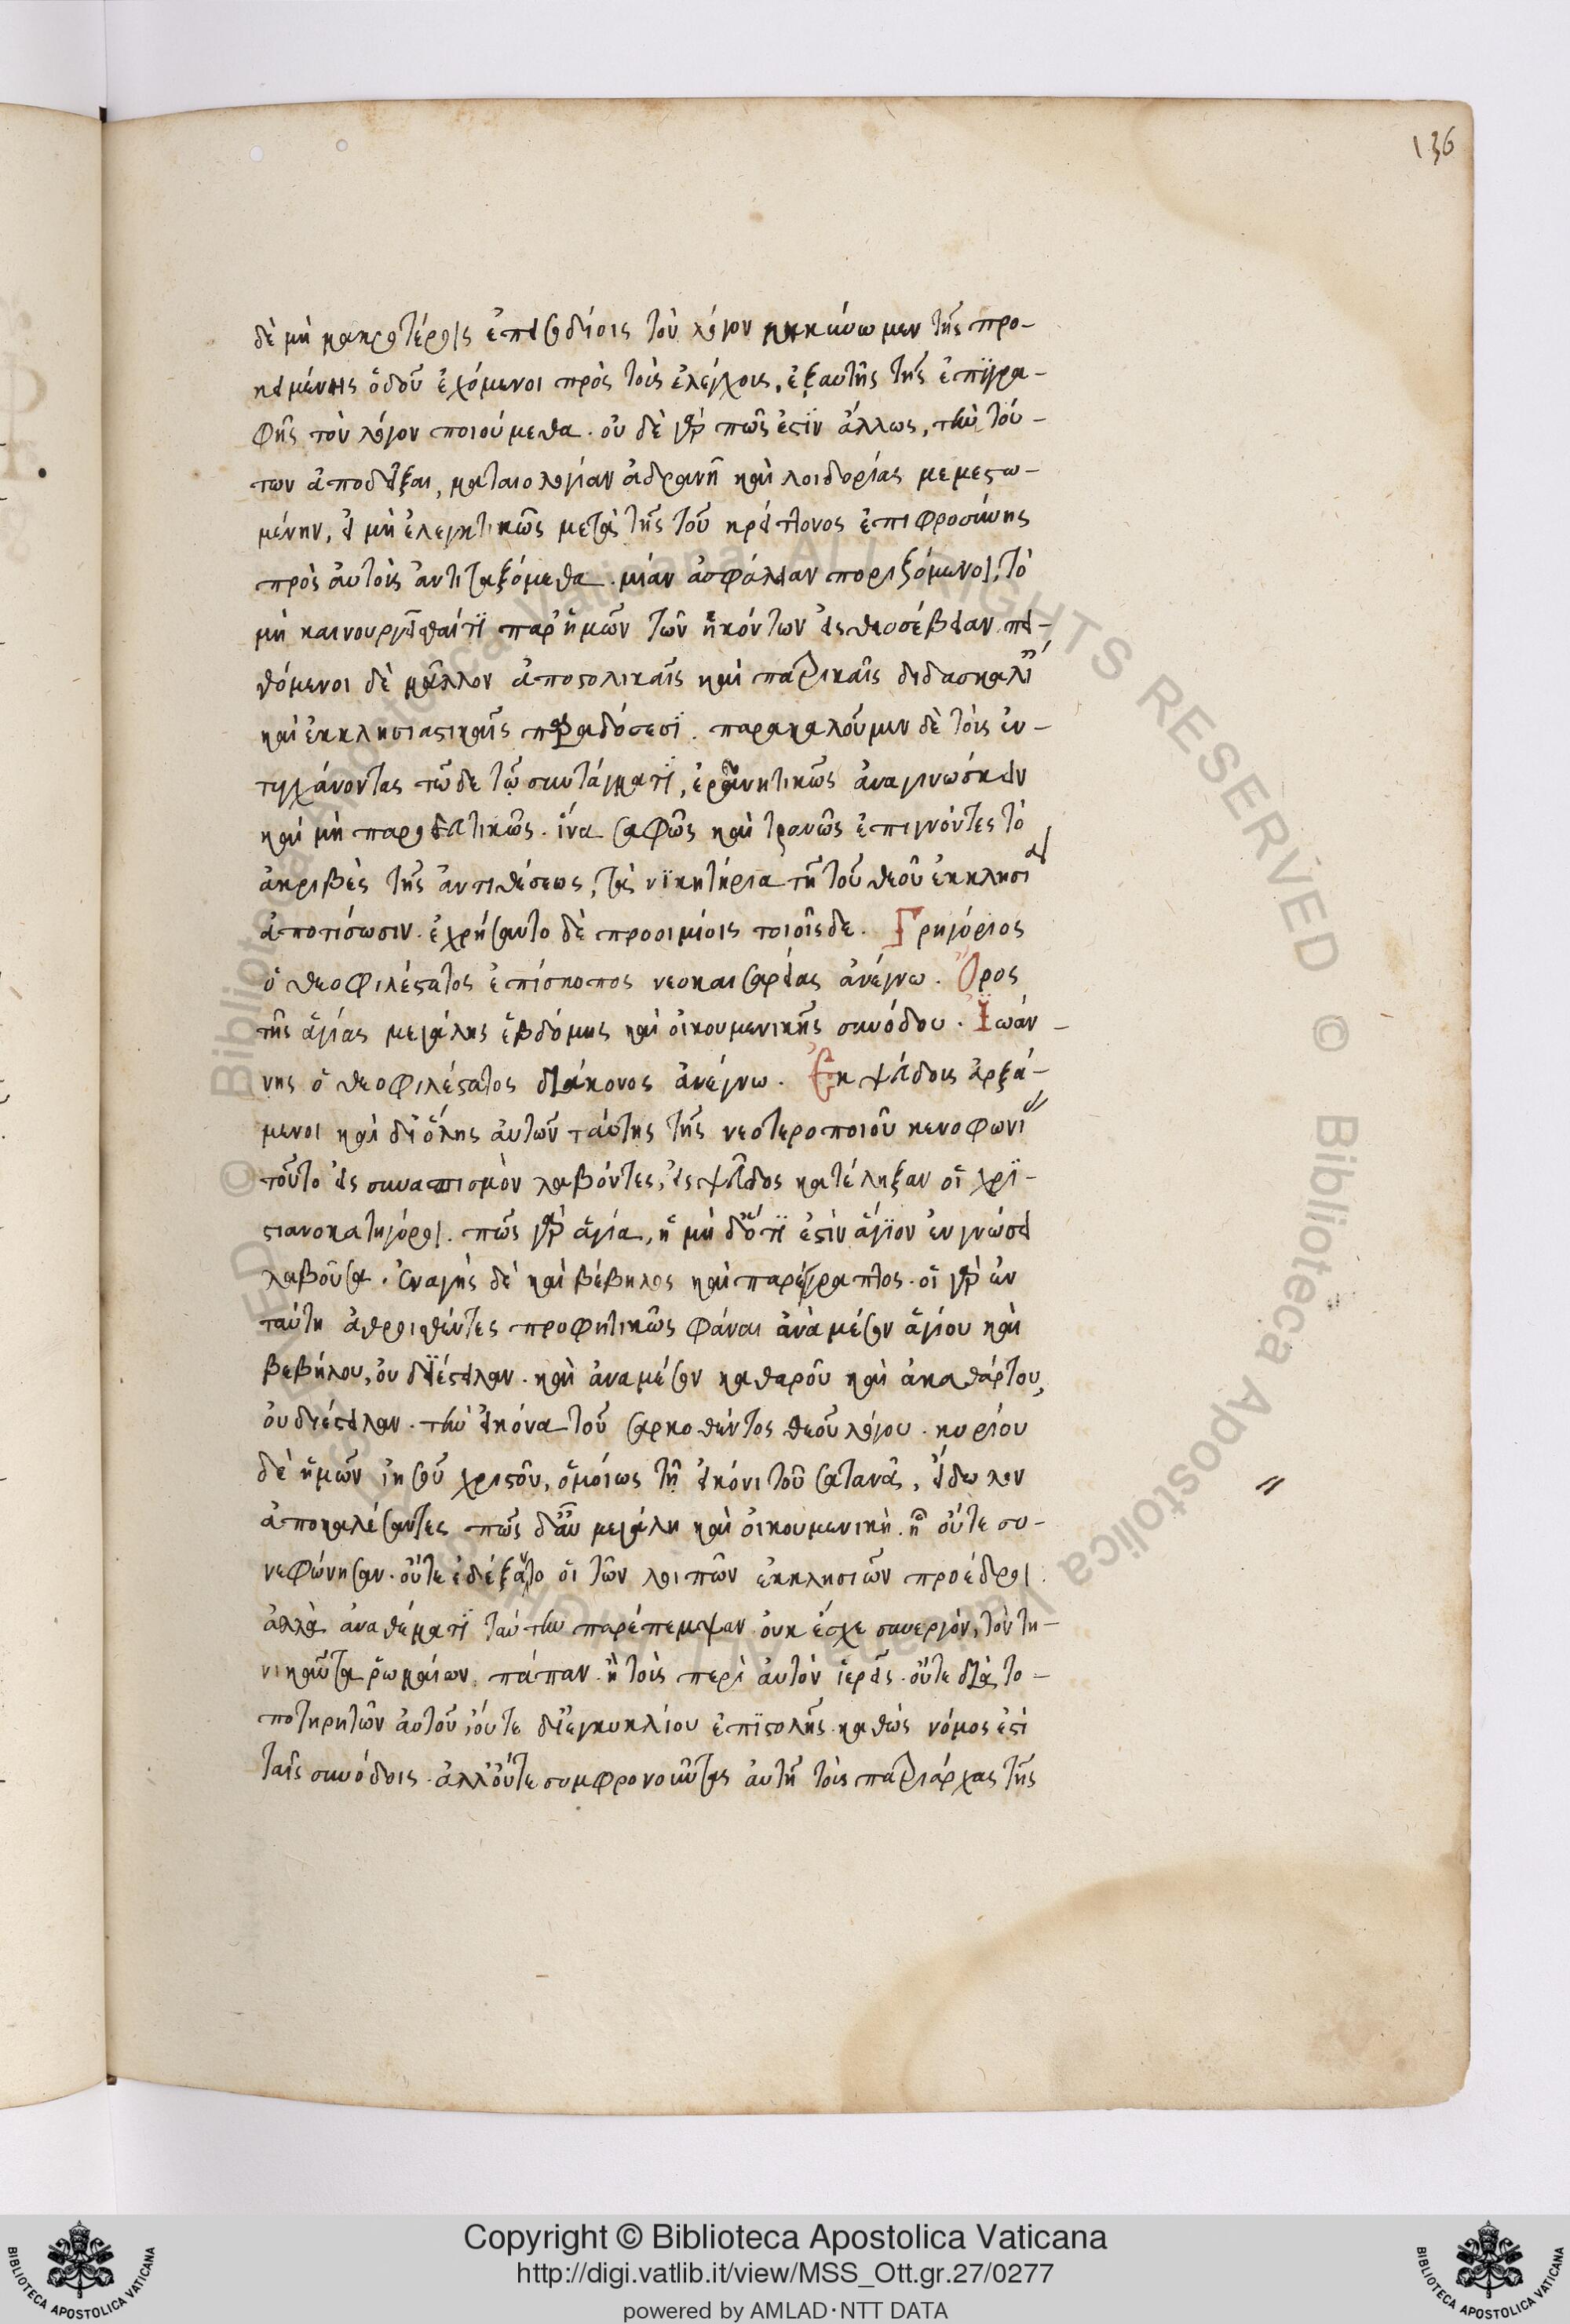 136
δὲ μὴ μακροτέροις ἐπεισοδίοις τὸν λόγον μηκύνωμεν τῆς προ-
κειμένης ὁδοῦ ἐχόμενοι πρὸς τοὺς ἐλέγχους, ἐξαυτῆς τῆς ἐπιγρα-
φῆς τὸν λόγον ποιούμεθα. οὐ δὲ γάρ πῶς ἐστὶν ἄλλως, τὴν τού-
των ἀποδεῖξαι, ματαιολογίαν ἀδρανῆ καὶ λοιδορίας μεμεστω-
μένην, εἰ μὴ ἐλεγκτικῶς μετὰ τῆς τοῦ κρείττονος ἐπιφροσύνης
πρὸς αὐτοὺς ἀντιταξόμεθα. μίαν ἀσφάλειαν ποριζόμενοι, τὸ
μὴ καινουργεῖσθαί τι παρ' ἡμῶν τῶν ἡκόντων εἰς θεοσέβειαν. πει-
θόμενοι δὲ μᾶλλον ἀποστολικαῖς καὶ πατρικαῖς διδασκαλί
καὶ ἐκκλησιαστικαῖς παραδόσεσι. παρακαλοῦμεν δὲ τοὺς ἐν-
τυχάνοντας τῶδε τῷ συντάγματι, ἐραυνητικῶς ἀναγινώσκειν
καὶ μὴ παροδευτικῶς. ἵνα σαφῶς καὶ τρανῶς ἐπιγνόντες τὸ
ἀκριβὲς τῆς ἀντιθέσεως, τὰ νικητήρια τῆ τοῦ θεοῦ ἐκκλησία
ἀποτίσωσιν. ἐχρήσαντο δὲ προοιμίοις τοιοῖσδε. Γρηγόριος
ὁ θεοφιλέστατος ἐπίσκοπος νεοκαισαρείας ἀνέγνω. Ὅρος
τῆς ἁγίας μεγάλης ἑβδόμης καὶ οἰκουμενικῆς συνόδου. Ἰωάν-
νης ὁ θεοφιλέστατος διάκονος ἀνέγνω. Ἐκ ψεύδους ἀρξά-
μενοι καὶ δι' ὅλης αὐτῶν ταύτης τῆς νεοτεροποιοῦ κενοφωνί
τοῦτο εἰς συνασπισμὸν λαβόντες, εἰς ψεῦδος κατέληξαν οἱ χρι-
στιανοκατήγοροι. πῶς γὰρ ἁγία, ἡ μηδ' ὅτι ἐστὶν ἅγιον ἐν γνώσει
λαβοῦσα. ἐναγὴς δὲ καὶ βέβηλος καὶ παρέγγραπτος. οἱ γὰρ ἐν
ταύτη ἀθροισθέντες προφητικῶς φάναι ἀνὰ μέσον ἁγίου καὶ
βεβήλου, οὐ διέστειλαν. καὶ ἀναμέσον καθαροῦ καὶ ἀκαθάρτου,
οὐ διέστειλαν. τὴν εἰκόνα τοῦ σαρκοθέντος θεοῦ λόγου. κυρίου
δὲ ἡμῶν ἰησοῦ χριστοῦ, ὁμοίως τῆ εἰκόνι τοῦ σατανᾶ, εἴδωλον
ἀποκαλέσαντες. πῶς δ' αὖ μεγάλη καὶ οἰκουμενική. ἣ οὔτε συ-
νεφώνησαν. οὔτε ἐδέξαντο οἱ τῶν λοιπῶν ἐκκλησιῶν προέδροι.
ἀλλὰ ἀναθέματι ταύτην παρέπεμψαν. οὐκ ἔσχε συνεργόν, τὸν τη-
νικαῦτα ῥωμαίων πάπαν. ἢ τοὺς περὶ αὐτὸν ἱερεῖς. οὔτε διὰ το-
ποτηρητῶν αὐτοῦ, οὔτε δι' ἐγκυκλίου ἐπιστολῆς. καθὼς νόμος ἐστὶ
ταῖς συνόδοις. ἀλλ' οὔτε συμφρονοῦντας αὐτῆ τοὺς πατριάρχας τῆς
Copyright © Biblioteca Apostolica Vaticana
http://digi.vatlib.it/view/MSS_Ott.gr.27/0277
powered by AMLAD·NTT DATA